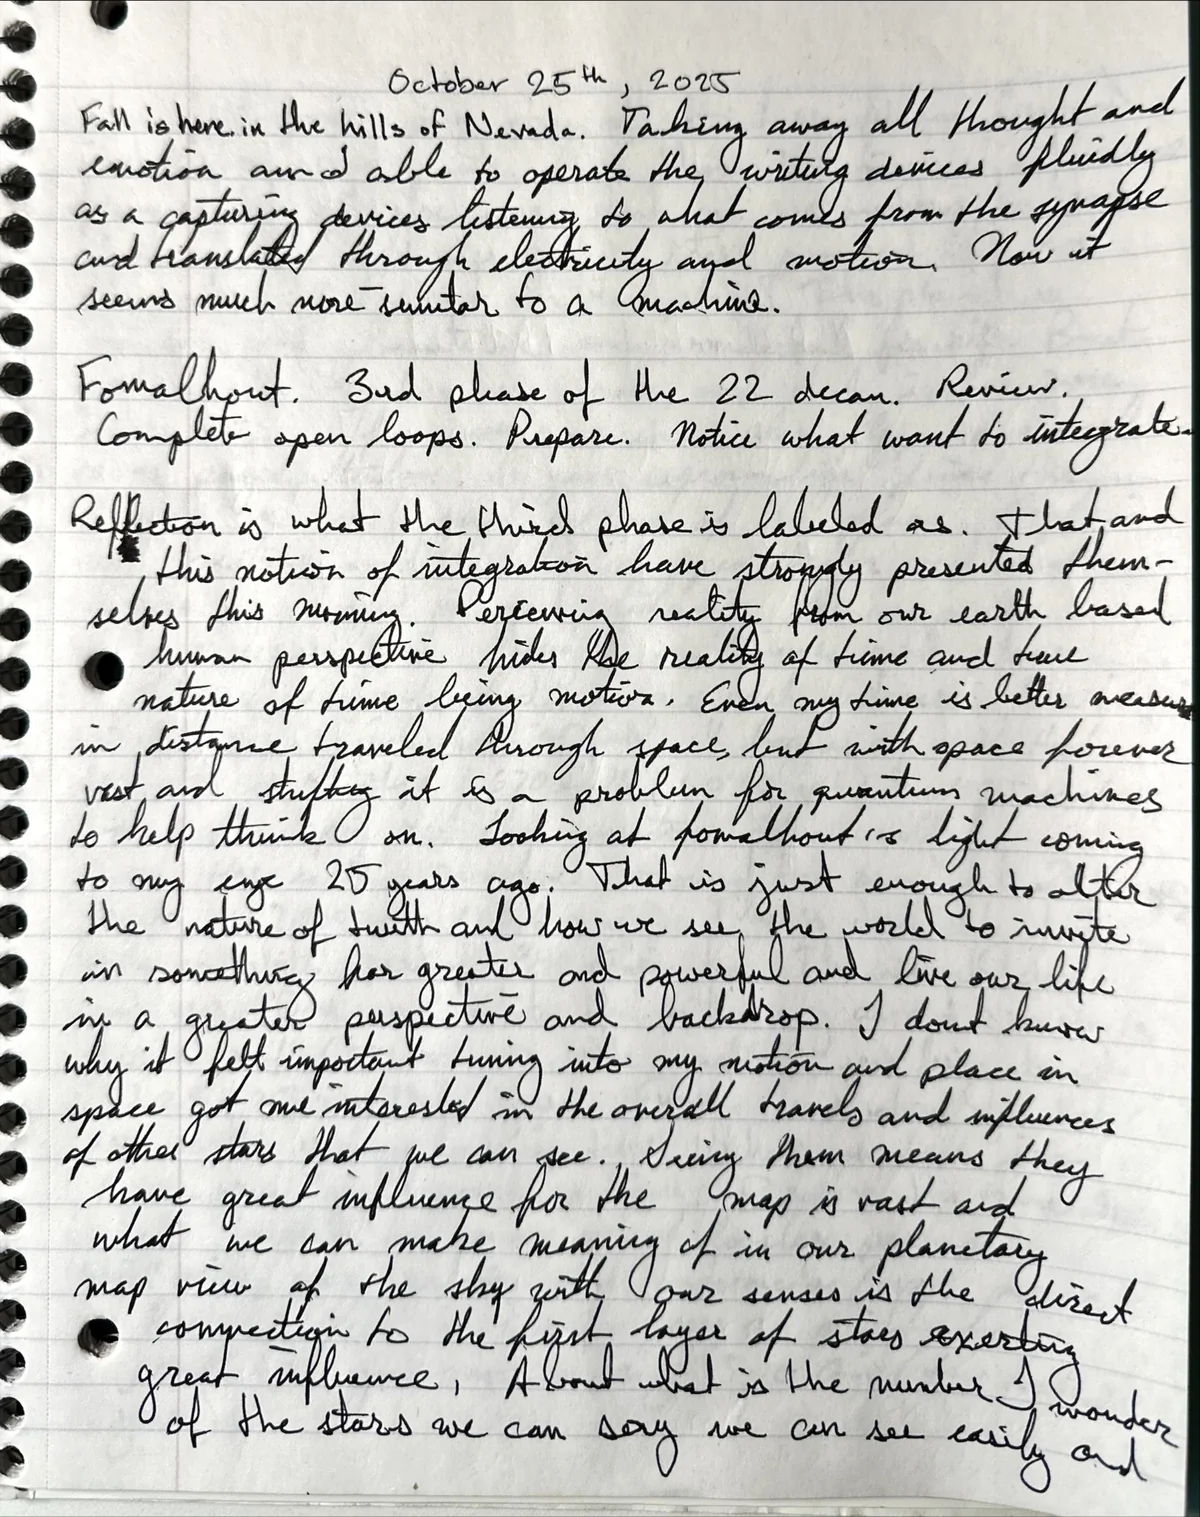 October 25th, 2025
Fall is here in the hills of Nevada. Taking away all thought and
emotion and able to operate the writing devices fluidly
as a capturing devices listening to what comes from the synapse
and translated through electricity and motion. Now it
seems much more similar to a machine.
Fomalhout. 3rd phase of the 22 decan. Review.
Complete open loops. Prepare. Notice what want to integrate.
Reflection is what the third phase is labeled as. That and
this notion of integration have strongly presented them-
selves this morning. Perceiving reality from our earth based
human perspective hides the reality of time and true
nature of time being motion. Even my time is better measured
in distance traveled through space, but with space forever
vast and shifting it is a problem for quantum machines
to help think on. Looking at fomalhout is light coming
to my eye 25 years ago. That is just enough to alter
the nature of truth and how we see the world to invite
in something far greater and powerful and live our life
in a greater perspective and backdrop. I dont know
why it felt important tuning into my motion and place in
space got me interested in the overall travels and influences
of other stars that we can see. Seeing them means they
have great influence for the map is vast and
what we can make meaning of in our planetary
map view of the sky with our senses is the direct
connection to the first layer of stars exerting
great influence. About what is the number I wonder
of the stars we can say we can see easily and